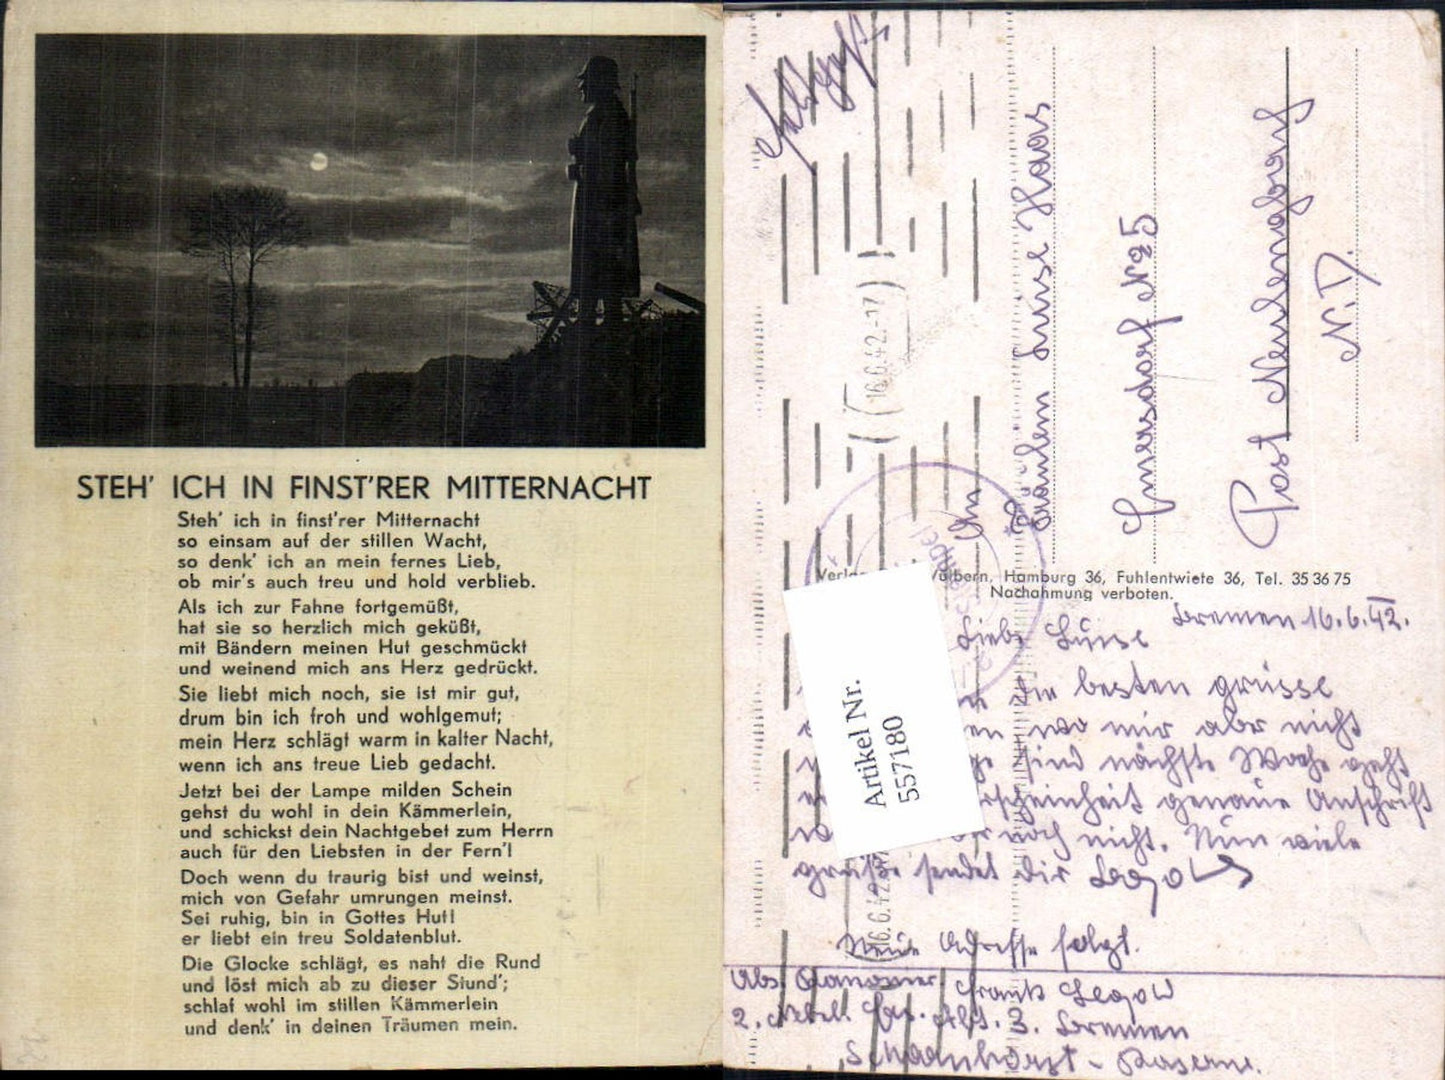 STEH' ICH IN FINST'RER MITTERNACHT
Steh' ich in finst'rer Mitternacht
so einsam auf der stillen Wacht,
so denk' ich an mein fernes Lieb,
ob mir's auch treu und hold verblieb.
Als ich zur Fahne fortgemüßt,
hat sie so herzlich mich geküßt,
mit Bändern meinen Hut geschmückt
und weinend mich ans Herz gedrückt.
Sie liebt mich noch, sie ist mir gut,
drum bin ich froh und wohlgemut;
mein Herz schlägt warm in kalter Nacht,
wenn ich ans treue Lieb gedacht.
Jetzt bei der Lampe milden Schein
gehst du wohl in dein Kämmerlein,
und schickst dein Nachtgebet zum Herrn
auch für den Liebsten in der Fern'!
Doch wenn du traurig bist und weinst,
mich von Gefahr umrungen meinst.
Sei ruhig, bin in Gottes Hut!
er liebt ein treu Soldatenblut.
Die Glocke schlägt, es naht die Rund
und löst mich ab zu dieser Stund';
schlaf wohl im stillen Kämmerlein
und denk' in deinen Träumen mein.
Feldpost
16.6.42.-17
An
Fräulein Luise Haas
Emersdorf No 5
Post Neulengbach
N. D.
Hamburg 36, Fuhlentwiete 36, Tel. 35 36 75
Nachahmung verboten.
Bremen 16.6.42.
Liebe Luise
die besten grüsse
wo wir aber nicht
sind nächste Woche geht
genaue Anschrift
noch nicht. Nun viele
grüße sendet dir
Neue Adresse folgt.
Abs. Kanonier Frank
3. Bremen
Scharnhorst - Kaserne.
Artikel Nr.
557180